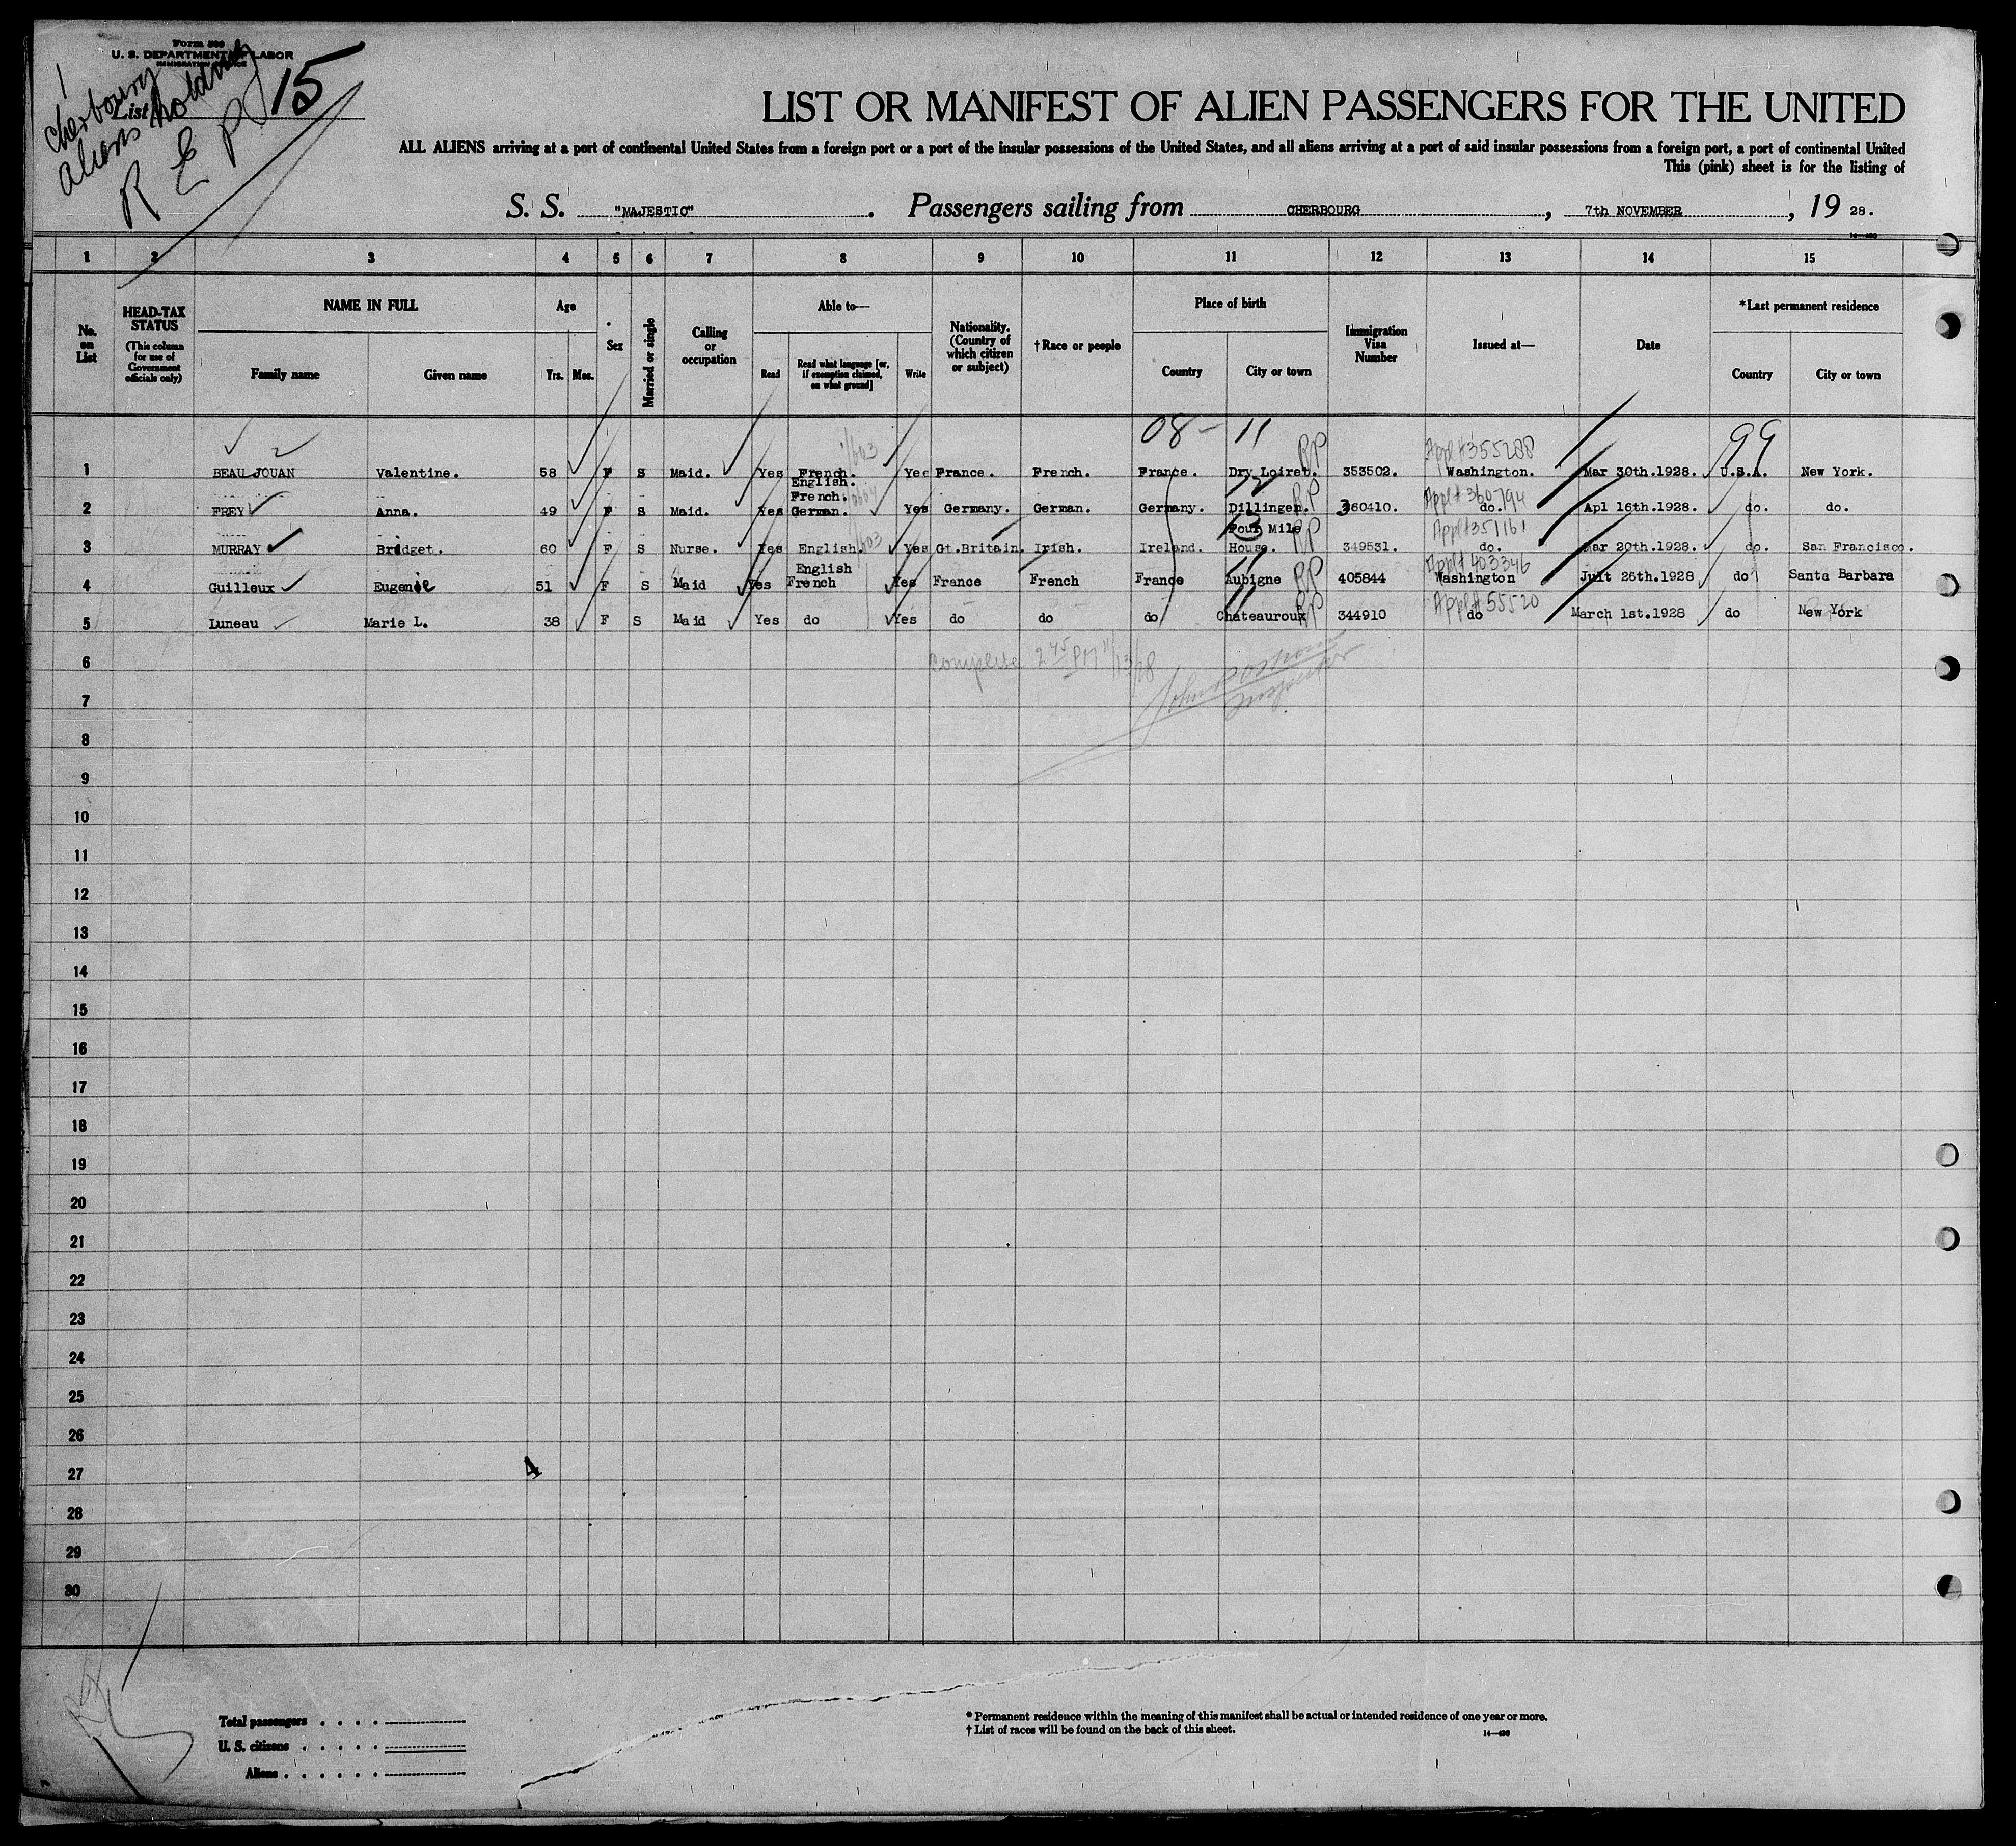 Form 500
U. S. DEPARTMENT OF LABOR
IMMIGRATION SERVICE
Cherbourg
List 15
aliens holding
R E P
LIST OR MANIFEST OF ALIEN PASSENGERS FOR THE UNITED
ALL ALIENS arriving at a port of continental United States from a foreign port or a port of the insular possessions of the United States, and all aliens arriving at a port of said insular possessions from a foreign port, a port of continental United
This (pink) sheet is for the listing of
S. S. "MAJESTIC". Passengers sailing from CHERBOURG, 7th NOVEMBER, 19 28.
1 2 3 4 5 6 7 8 9 10 11 12 13 14 15
No. on List
HEAD-TAX STATUS
(This column for use of Government officials only)
NAME IN FULL
Family name Given name
Age
Yrs. Mos.
Sex
Married or single
Calling or occupation
Able to—
Read
Read what language [or, if exemption claimed, on what ground]
Write
Nationality. (Country of which citizen or subject)
†Race or people
Place of birth
Country City or town
Immigration Visa Number
Issued at—
Date
*Last permanent residence
Country City or town
08 - 11 99
Appl#355288
1 BEAU JOUAN Valentine. 58 F S Maid. Yes French. English. Yes France. French. France. Dry Loiret. RP 353502. Washington. Mar 30th.1928. U.S.A. New York.
12 Appl#360794
2 FREY Anna. 49 F S Maid. Yes French. German. Yes Germany. German. Germany. Dillingen. RP 360410. do. Apl 16th.1928. do. do.
13 Appl#351161
3 MURRAY Bridget. 60 F S Nurse. Yes English. Yes Gt.Britain. Irish. Ireland. Four Mile House. RP 349531. do. Mar 20th.1928. do. San Francisco.
11 Appl#403346
4 Guilleux Eugenie 51 F S Maid Yes English French Yes France French France Aubigne RP 405844 Washington Juit 26th.1928 do Santa Barbara
11 Appl#55520
5 Luneau Marie L. 38 F S Maid Yes do Yes do do do Chateauroux RP 344910 do March 1st.1928 do New York
Complete 2 45 PM 11/13/28
6
7
8
9
10
11
12
13
14
15
16
17
18
19
20
21
22
23
24
25
26
27 4
28
29
30
Total passengers
U. S. citizens
Aliens
* Permanent residence within the meaning of this manifest shall be actual or intended residence of one year or more.
† List of races will be found on the back of this sheet.
14—430